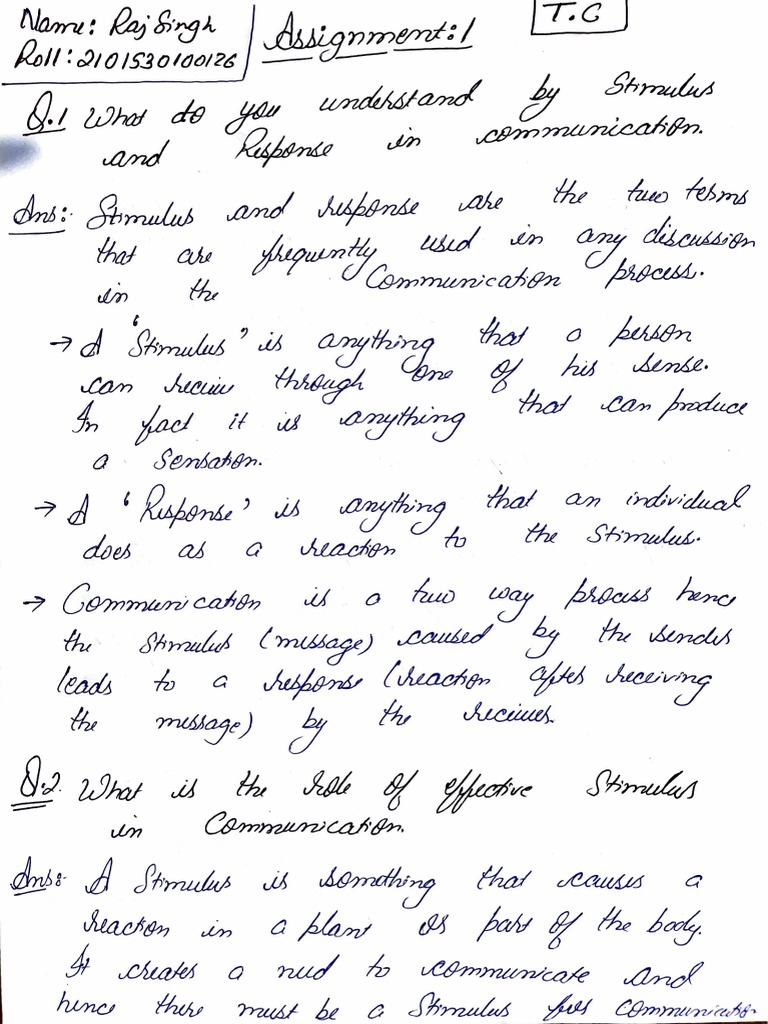 Name: Raj Singh
Roll: 2101530100126
Assignment:1
T.C
Q.1 What do you understand by Stimulus
and Response in communication.
Ans: Stimulus and response are the two terms
that are frequently used in any discussion
in the Communication process.
→ A 'Stimulus' is anything that a person
can recieve through one of his sense.
In fact it is anything that can produce
a sensation.
→ A 'Response' is anything that an individual
does as a reaction to the Stimulus.
→ Communication is a two way process hence
the Stimulus (message) caused by the sender
leads to a response (reaction after receiving
the message) by the reciever.
Q.2. What is the role of effective Stimulus
in Communication.
Ans: A Stimulus is something that causes a
reaction in a plant or part of the body.
It creates a need to communicate and
hence there must be a Stimulus for communication